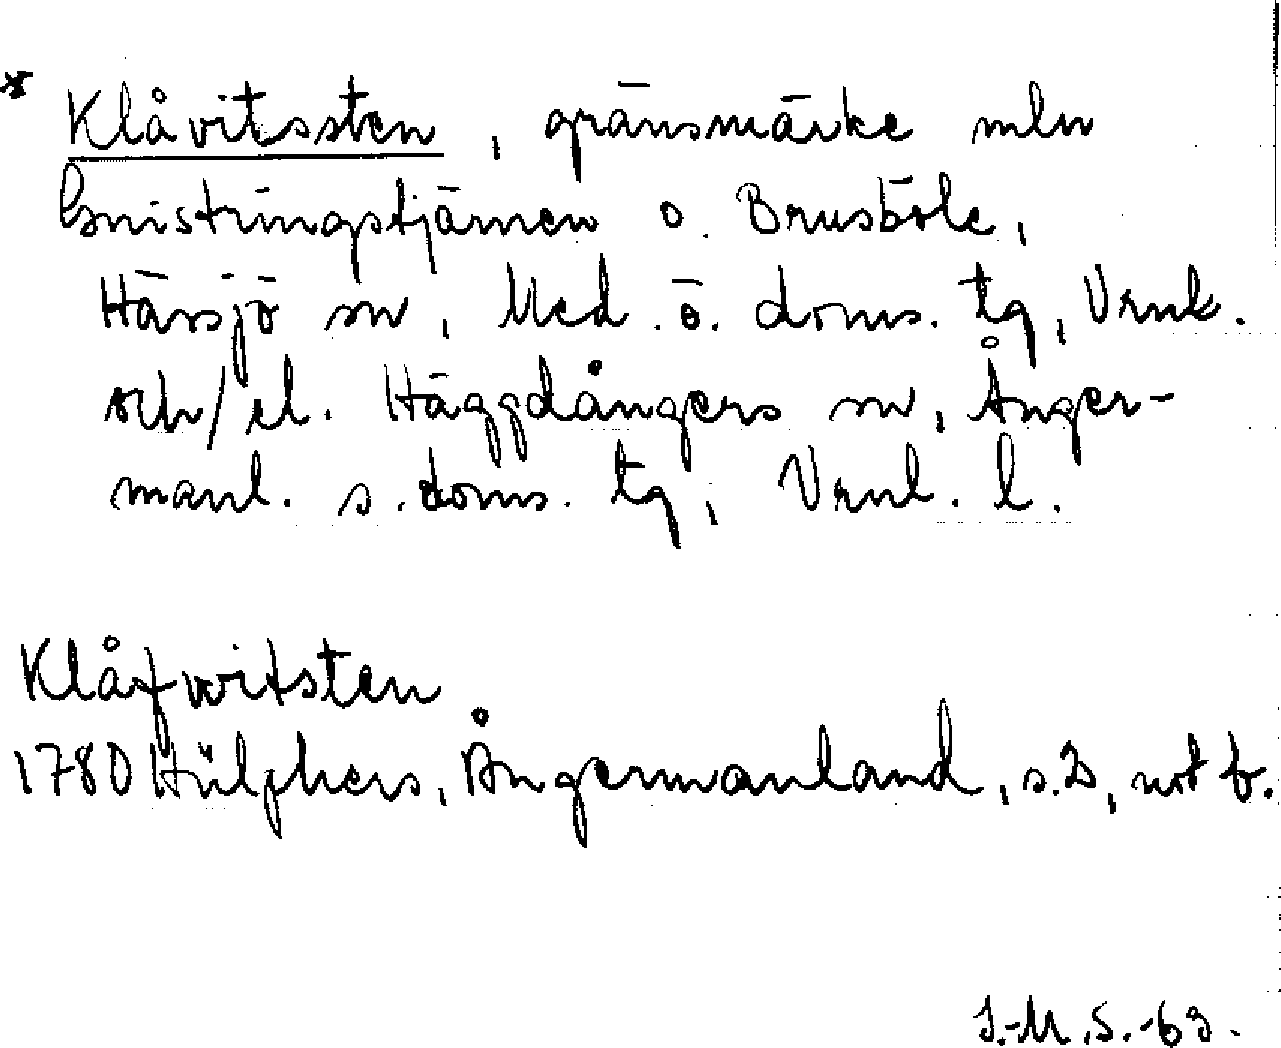 * Klåvitssten, gränsmärke mln
Gnistringstjärnen o. Brusböle,
Hässjö sn, Med. ö. doms. tg, Vrnl.
och/el. Häggdångers sn, Ånger-
manl. s. doms. tg, Vrnl. l.
Klåfwitsten
1780 Hülphers, Ångermanland, s. 2, not b.
I.-M.S.-69.